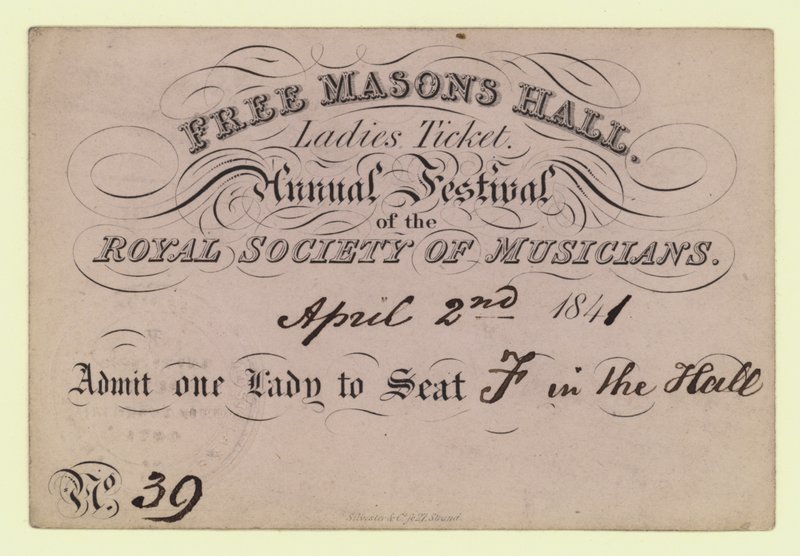 FREE MASONS HALL.
Ladies Ticket.
Annual Festival
of the
ROYAL SOCIETY OF MUSICIANS.
April 2nd 1841
Admit one Lady to Seat F in the Hall
No. 39
Silvester & Co. 27, Strand.